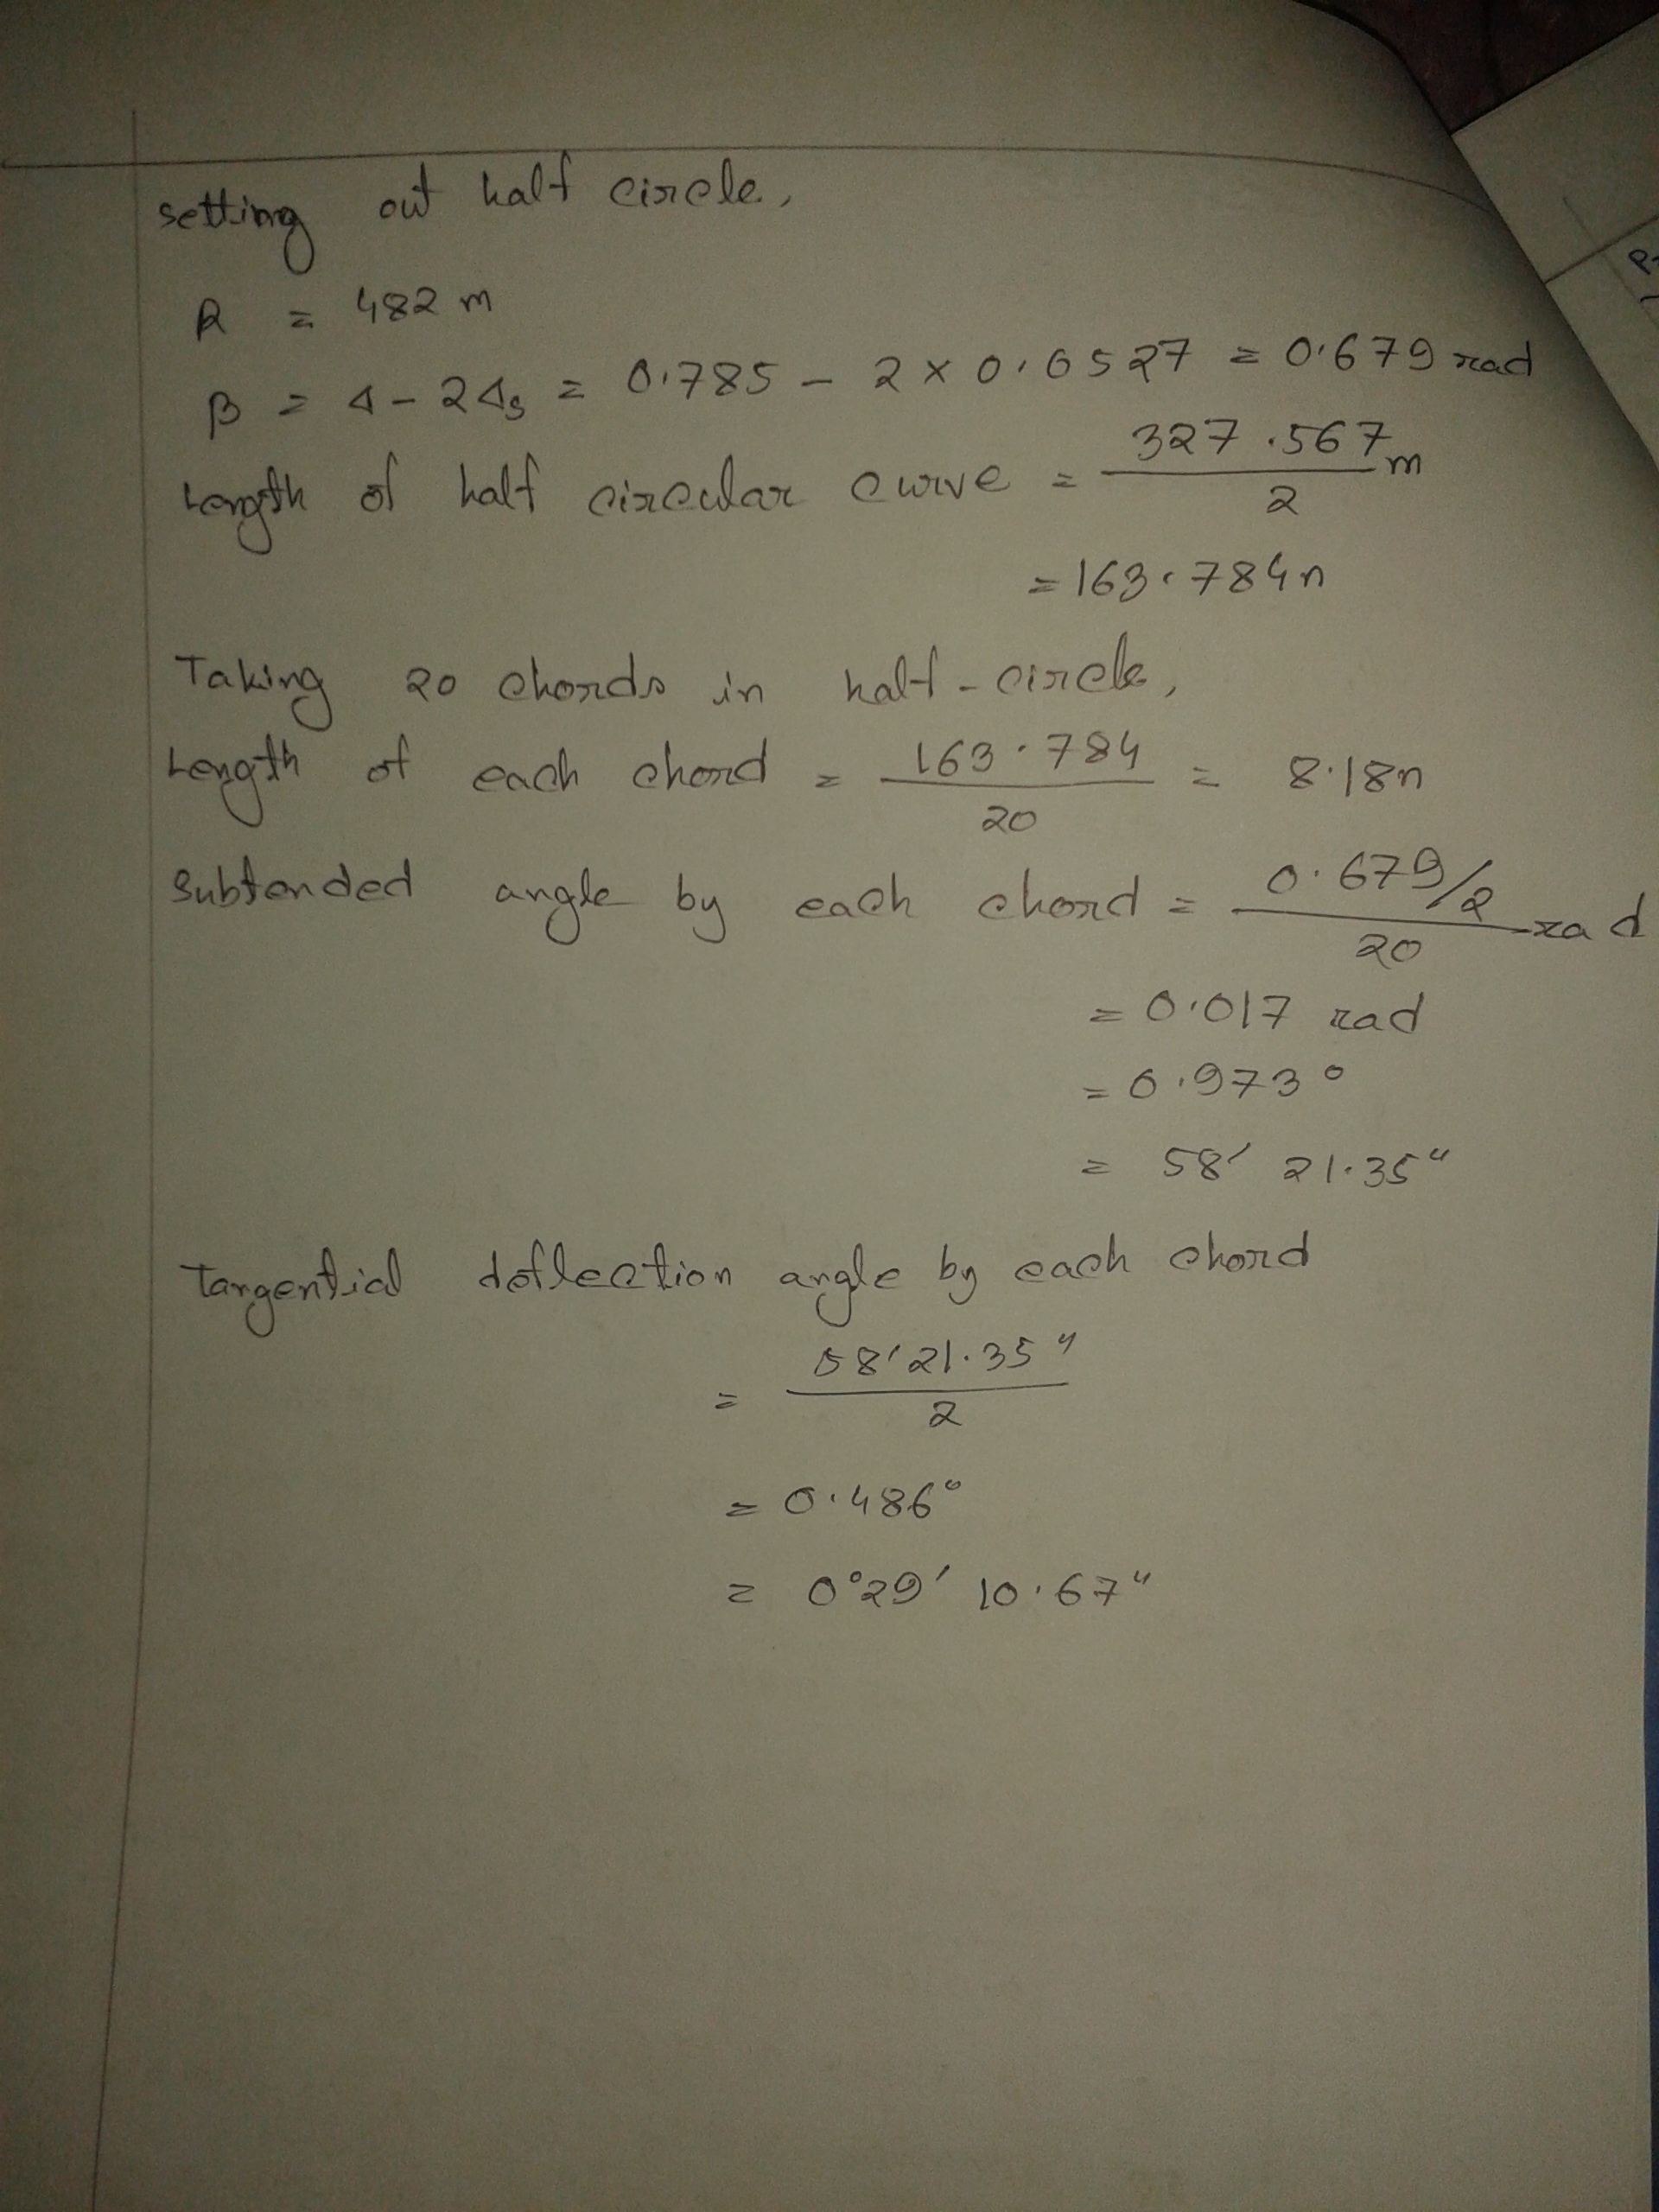 setting out half circle,
R = 482 m
β = Δ - 2Δs = 0.785 - 2 × 0.0527 = 0.679 rad
Length of half circular curve = 327.567/2 m
= 163.784 n
Taking 20 chords in half-circle,
Length of each chord = 163.784/20 = 8.18 n
Subtended angle by each chord = (0.679/2)/20 rad
= 0.017 rad
= 0.973°
= 58' 21.35"
Tangential deflection angle by each chord
= 58' 21.35"/2
= 0.486°
= 0° 29' 10.67"